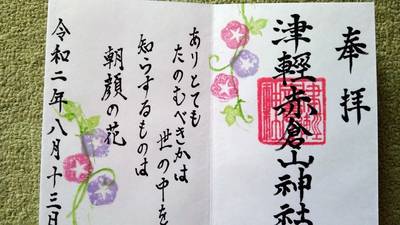 奉拝
津軽赤倉山神社
ありとても
たのむべきかは
世の中を
知らするものは
朝顔の花
令和二年八月十三日